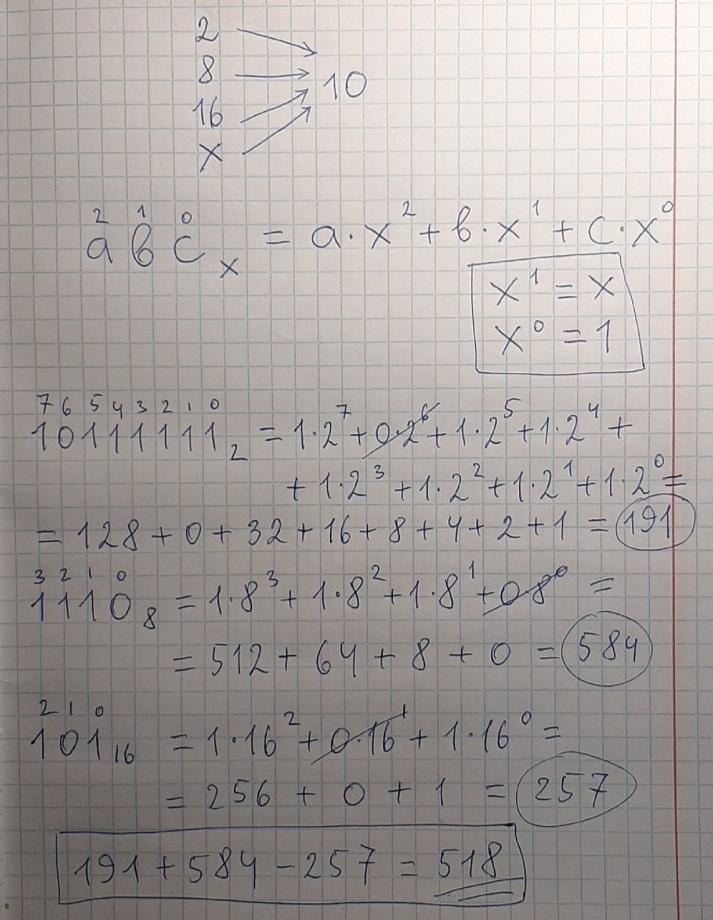 2
8
16
x
10
2 1 0
a b c x = a·x² + b·x¹ + c·x⁰
x¹ = x
x⁰ = 1
7 6 5 4 3 2 1 0
10111111₂ = 1·2⁷ + 0·2⁶ + 1·2⁵ + 1·2⁴ +
+ 1·2³ + 1·2² + 1·2¹ + 1·2⁰ =
= 128 + 0 + 32 + 16 + 8 + 4 + 2 + 1 = 191
3 2 1 0
1110₈ = 1·8³ + 1·8² + 1·8¹ + 0·8⁰ =
= 512 + 64 + 8 + 0 = 584
2 1 0
101₁₆ = 1·16² + 0·16¹ + 1·16⁰ =
= 256 + 0 + 1 = 257
191 + 584 - 257 = 518